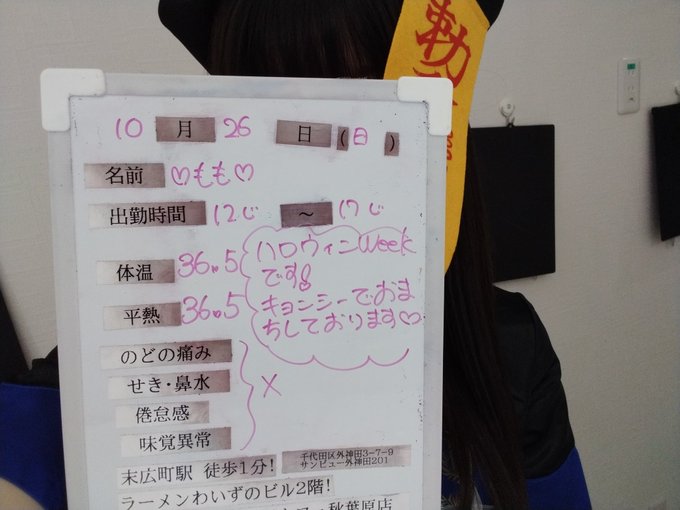 10月26日(日)
名前 ♡もも♡
出勤時間 12じ ～ 17じ
体温 36.5
平熱 36.5
ハロウィンWeek
です
キョンシーでおま
ちしております♡
のどの痛み
せき・鼻水
倦怠感
味覚異常
×
末広町駅 徒歩1分!
千代田区外神田3-7-9
サンビュー外神田201
ラーメンわいずのビル2階!
秋葉原店
勅